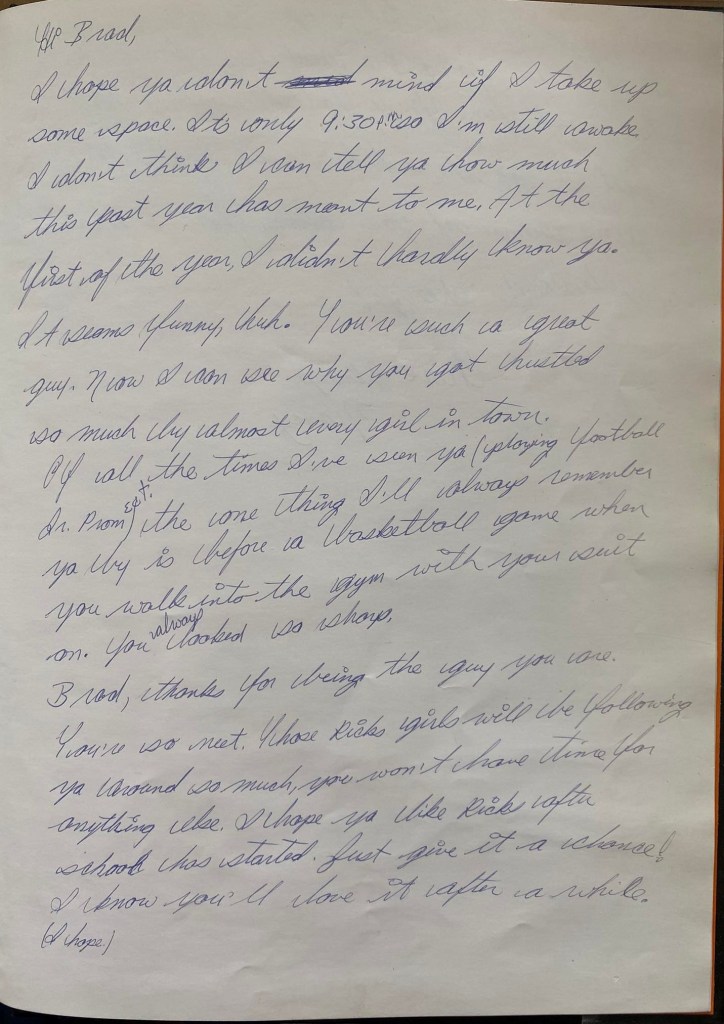 Hi Brad,
I hope ya don't mind if I take up
some space. It's only 9:30 P.M. so I'm still awake.
I don't think I can tell ya how much
this past year has meant to me. At the
first of the year, I didn't hardly know ya.
It seams funny, huh. You're such a great
guy. Now I can see why you got hustled
so much by almost every girl in town.
Of all the times I've seen ya (playing football
Jr. Prom, ect.) the one thing I'll always remember
ya by is before a basketball game when
you walk into the gym with your suit
on. You always looked so sharp.
Brad, thanks for being the guy you are.
You're so neet. Those Ricks girls will be following
ya around so much, you won't have time for
anything else. I hope ya like Ricks after
school has started. Just give it a chance!
I know you'll love it after a while.
(I hope.)